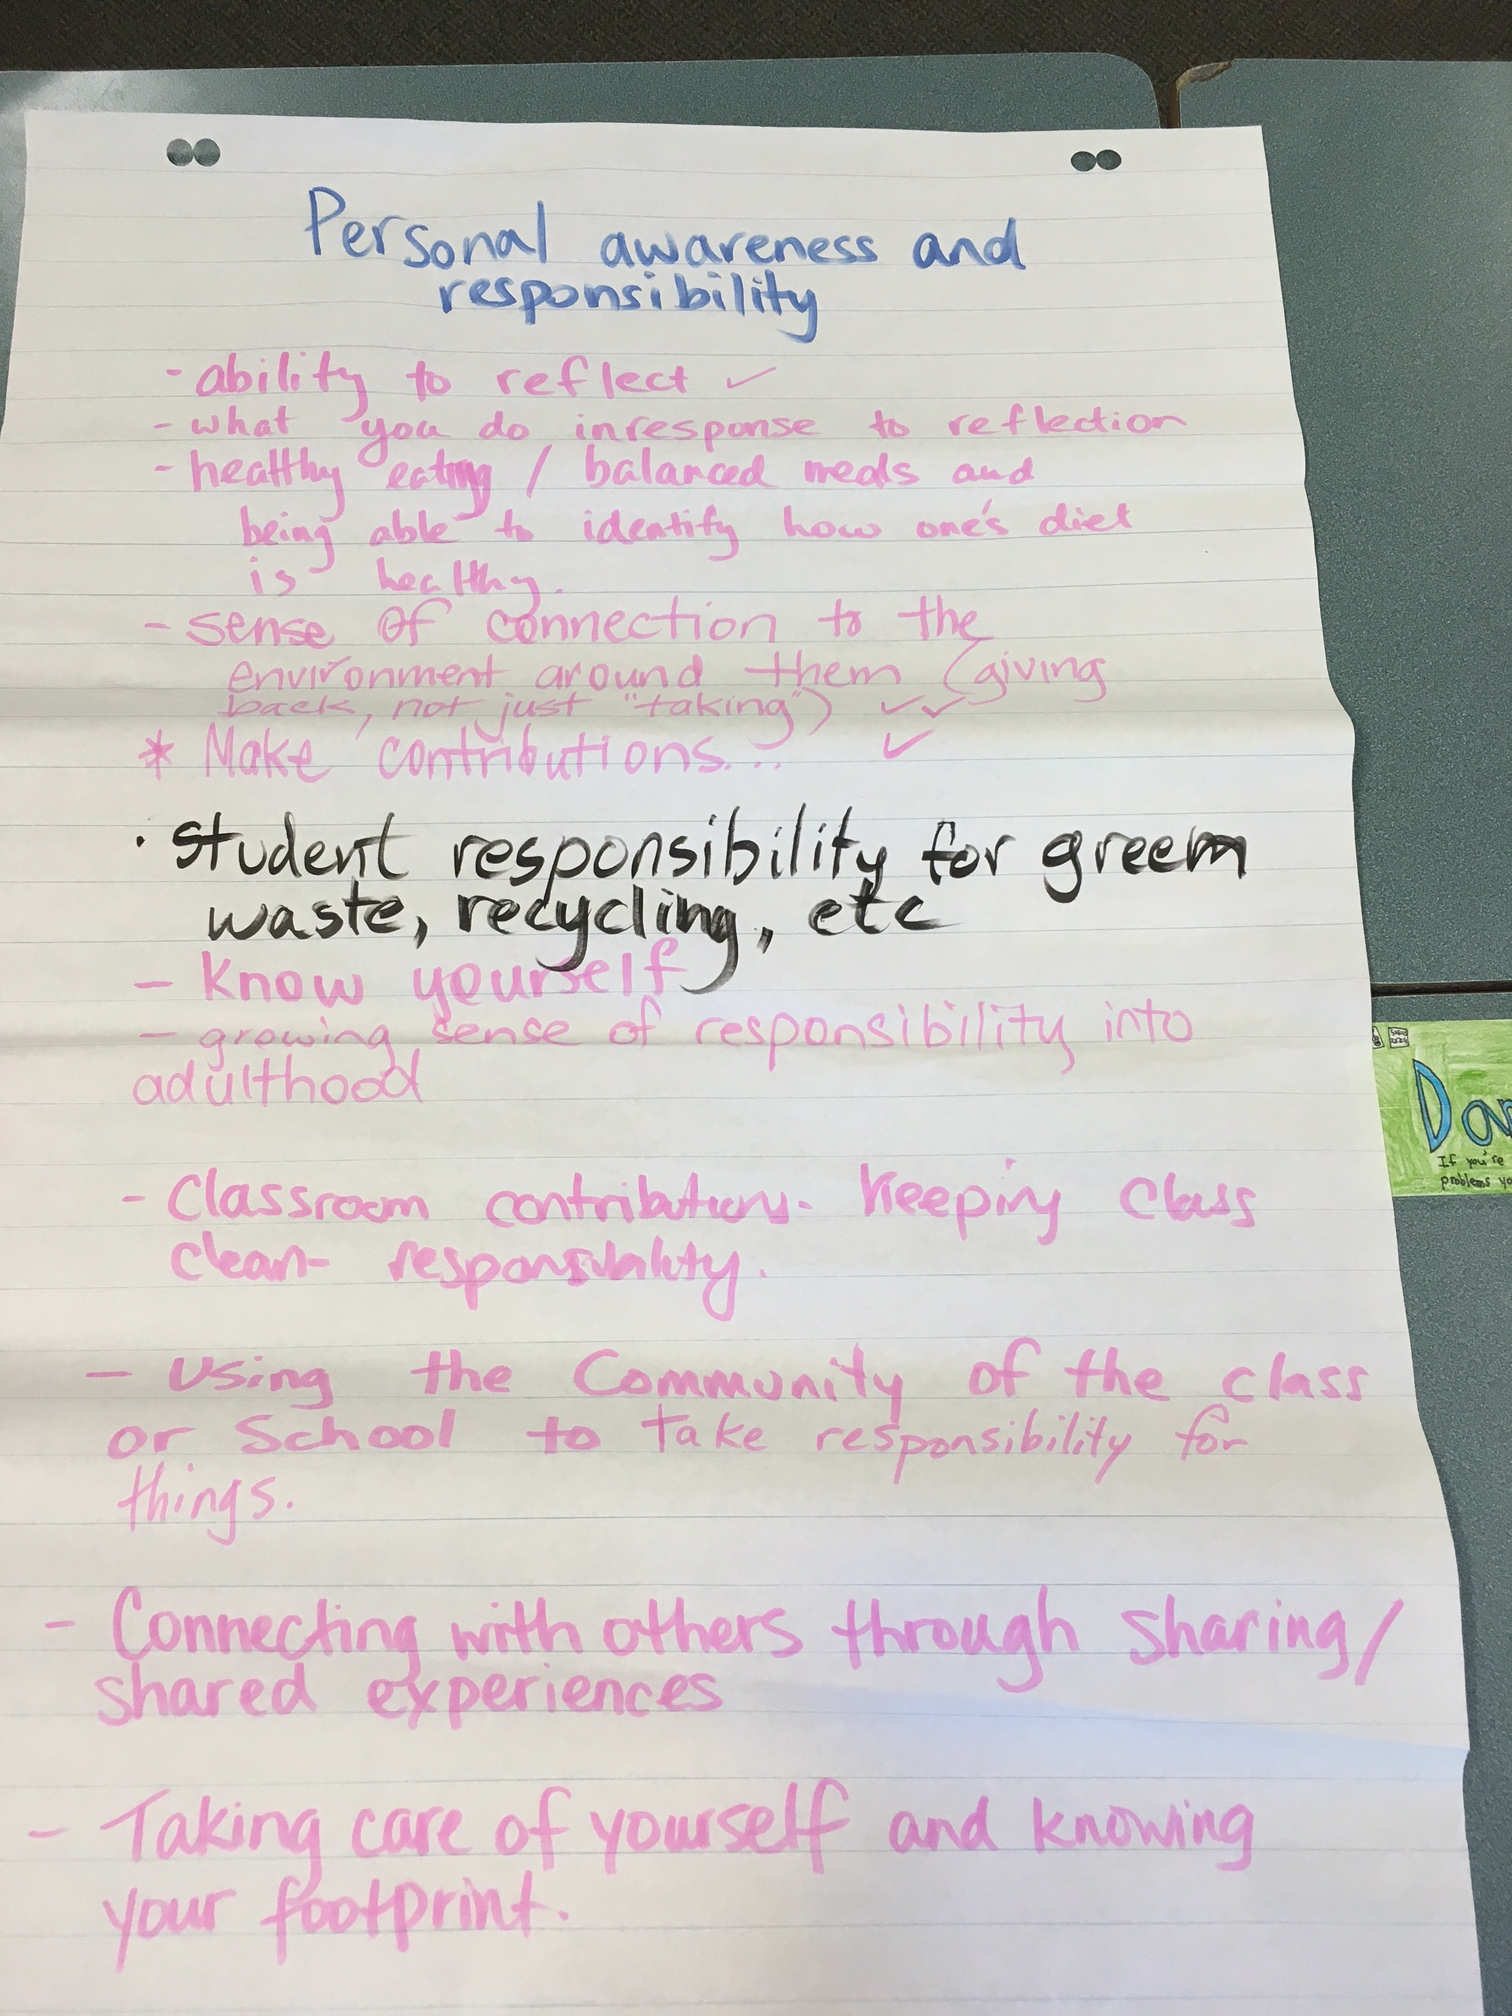 Personal awareness and
responsibility
- ability to reflect ✓
- what you do in response to reflection
- healthy eating / balanced meals and
being able to identify how one's diet
is healthy.
- sense of connection to the
environment around them (giving
back, not just "taking") ✓✓
* Make contributions... ✓
· student responsibility for green
waste, recycling, etc
- Know yourself
- growing sense of responsibility into
adulthood
- Classroom contributions- Keeping class
clean- responsibility.
- Using the Community of the class
or School to take responsibility for
things.
- Connecting with others through sharing/
shared experiences
- Taking care of yourself and knowing
your footprint.
If you're
problems